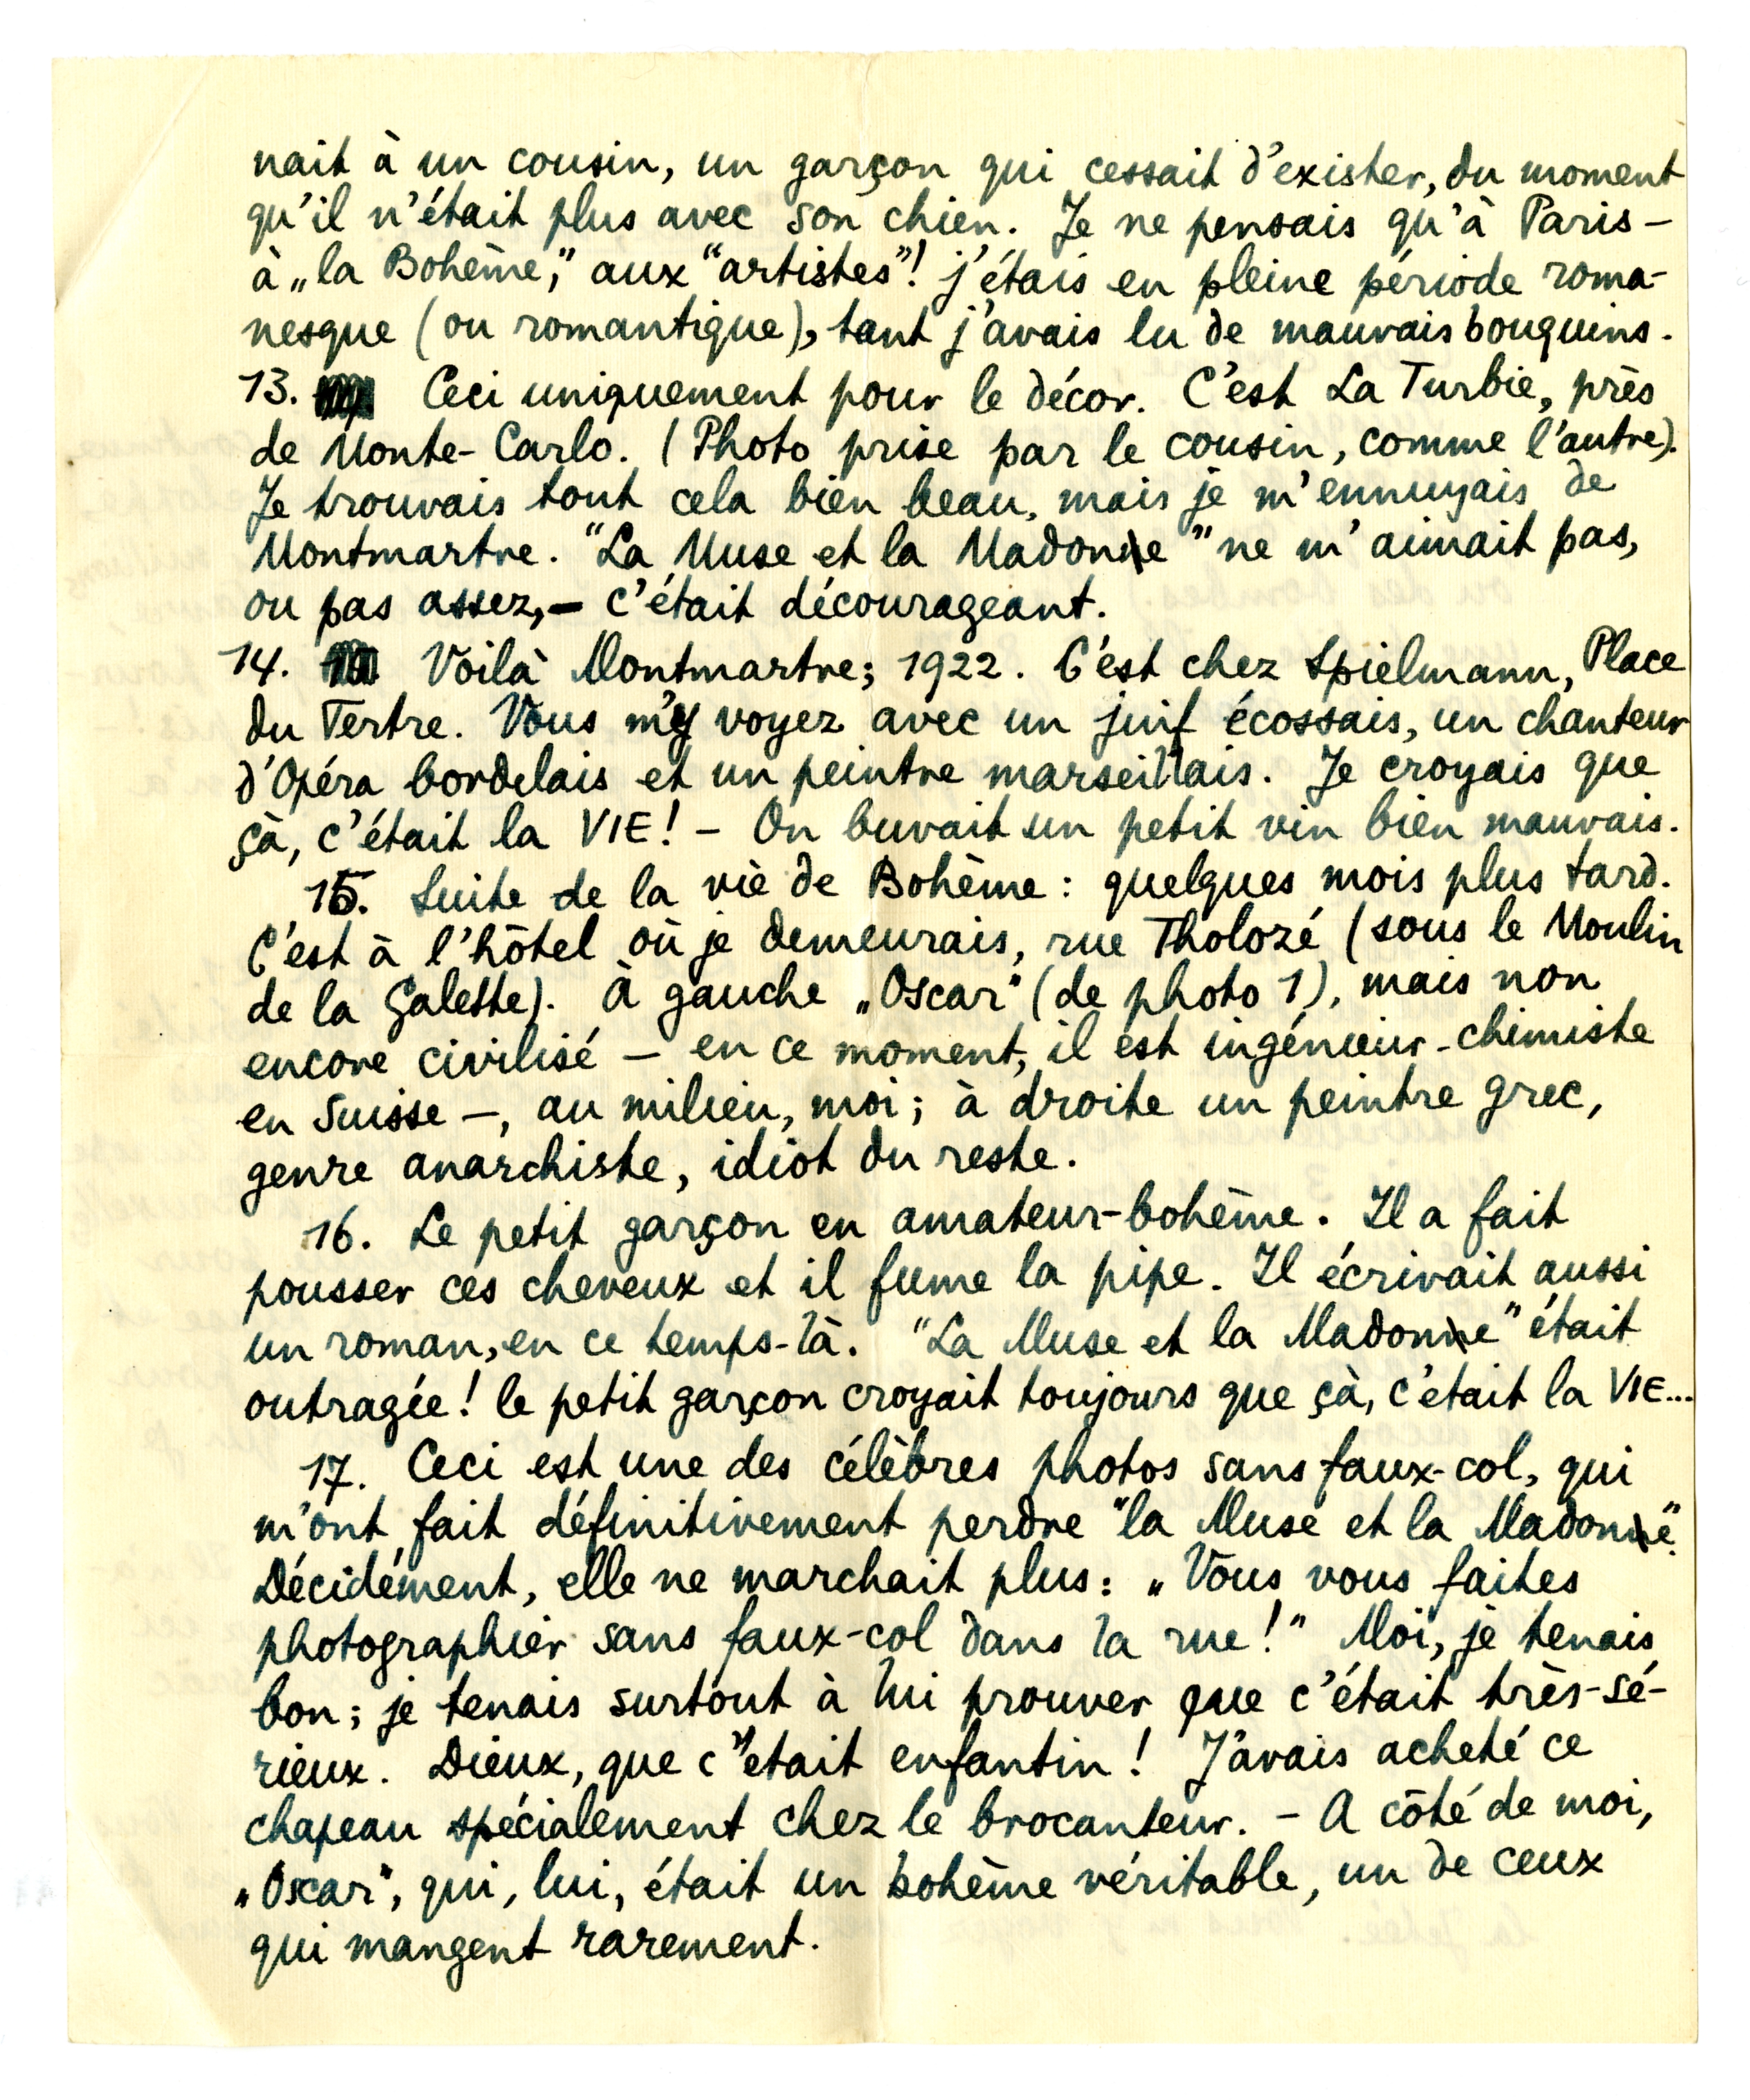 nait à un cousin, un garçon qui cessait d'exister, du moment
qu'il n'était plus avec son chien. Je ne pensais qu'à Paris –
à „la Bohême," aux "artistes"! j'étais en pleine période roma-
nesque (ou romantique), tant j'avais lu de mauvais bouquins.
13. Ceci uniquement pour le décor. C'est La Turbie, près
de Monte-Carlo. (Photo prise par le cousin, comme l'autre).
Je trouvais tout cela bien beau, mais je m'ennuyais de
Montmartre. "La Muse et la Madone" ne m'aimait pas,
ou pas assez, – c'était décourageant.
14. Voilà Montmartre; 1922. C'est chez Spielmann, Place
du Tertre. Vous m'y voyez avec un juif écossais, un chanteur
d'Opéra bordelais et un peintre marseillais. Je croyais que
çà, c'était la VIE! – On buvait un petit vin bien mauvais.
15. Suite de la vie de Bohême: quelques mois plus tard.
C'est à l'hôtel où je demeurais, rue Tholozé (sous le Moulin
de la Galette). À gauche „Oscar" (de photo 1), mais non
encore civilisé – en ce moment, il est ingénieur-chimiste
en Suisse –, au milieu, moi; à droite un peintre grec,
genre anarchiste, idiot du reste.
16. Le petit garçon en amateur-bohême. Il a fait
pousser ces cheveux et il fume la pipe. Il écrivait aussi
un roman, en ce temps-là. "La Muse et la Madone" était
outragée! le petit garçon croyait toujours que çà, c'était la VIE...
17. Ceci est une des célèbres photos sans faux-col, qui
m'ont fait définitivement perdre "la Muse et la Madone".
Décidément, elle ne marchait plus: „Vous vous faites
photographier sans faux-col dans la rue!" Moi, je tenais
bon; je tenais surtout à lui prouver que c'était très-sé-
rieux. Dieux, que c'était enfantin! J'avais acheté ce
chapeau spécialement chez le brocanteur. – A côté de moi,
„Oscar", qui, lui, était un bohême véritable, un de ceux
qui mangent rarement.